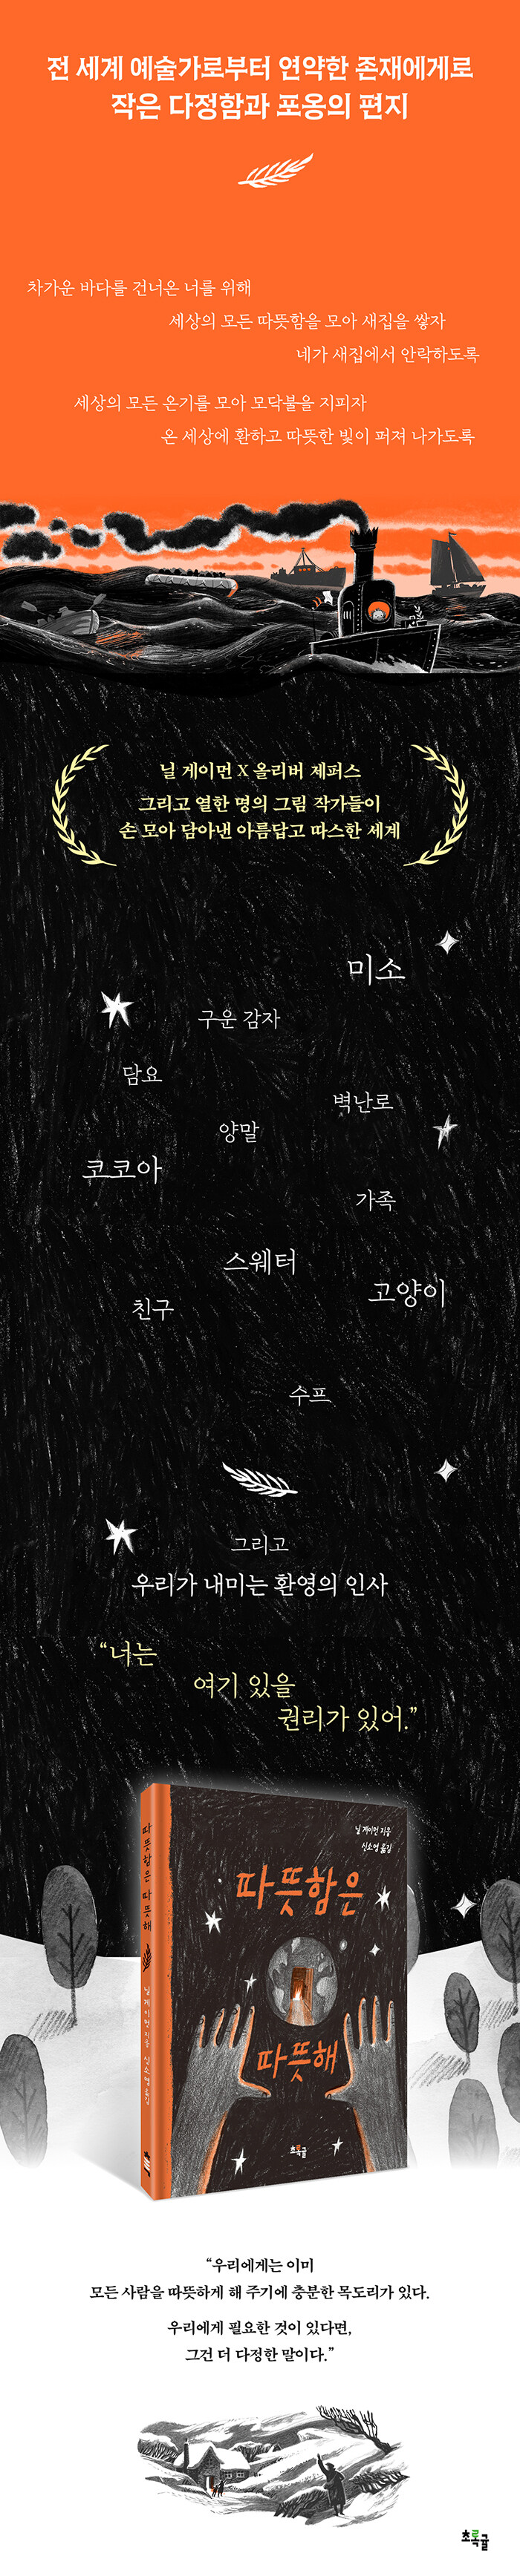 전 세계 예술가로부터 연약한 존재에게로
작은 다정함과 포옹의 편지
차가운 바다를 건너온 너를 위해
세상의 모든 따뜻함을 모아 새집을 쌓자
네가 새집에서 안락하도록
세상의 모든 온기를 모아 모닥불을 지피자
온 세상에 환하고 따뜻한 빛이 퍼져 나가도록
닐 게이먼 X 올리버 제퍼스
그리고 열한 명의 그림 작가들이
손 모아 담아낸 아름답고 따스한 세계
미소
구운 감자
담요
벽난로
양말
코코아
가족
스웨터
고양이
친구
수프
그리고
우리가 내미는 환영의 인사
“너는
여기 있을
권리가 있어.”
닐 게이먼 지음
신소희 옮김
따뜻함은
따뜻해
초록귤
따뜻함은 따뜻해
닐 게이먼 지음 신소희 옮김
“우리에게는 이미
모든 사람을 따뜻하게 해 주기에 충분한 목도리가 있다.
우리에게 필요한 것이 있다면,
그건 더 다정한 말이다.”
초록귤